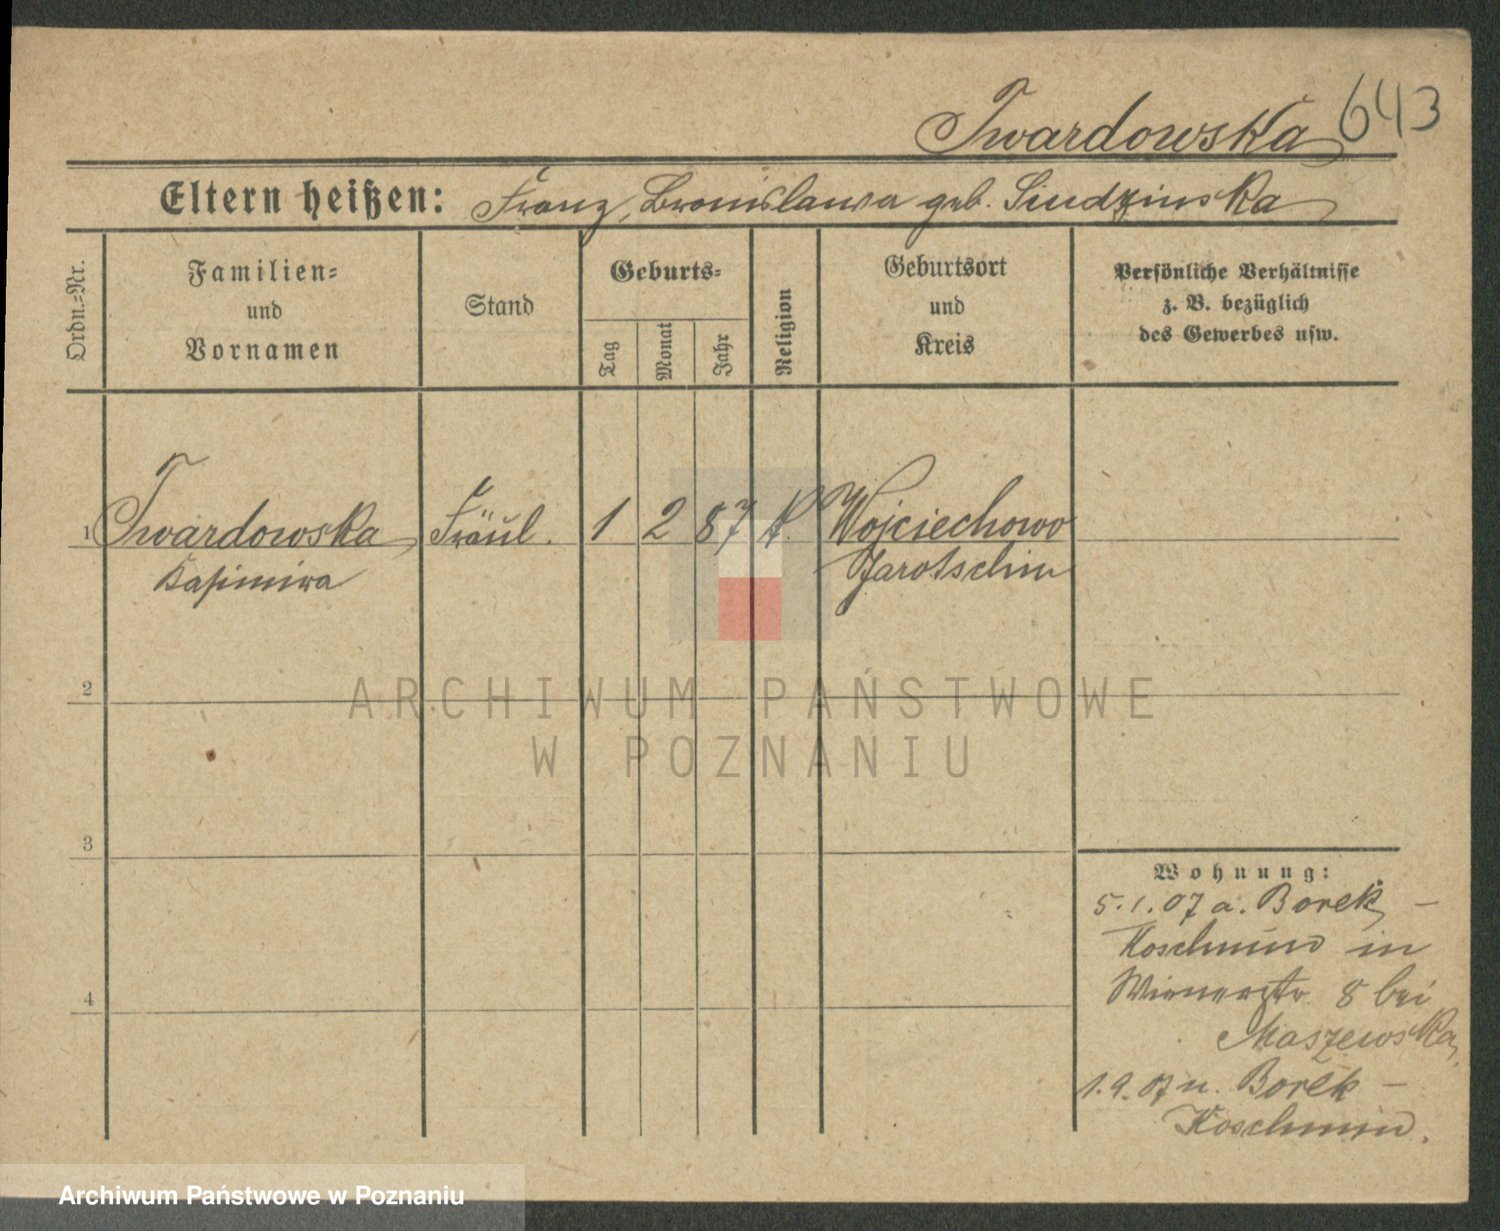 Twardowska 643
Eltern heißen: Franz, Bronislawa geb. Siudzinska
Ordn.=Nr.
Familien=
und
Vornamen
Stand
Geburts=
Tag
Monat
Jahr
Religion
Geburtsort
und
Kreis
Persönliche Verhältnisse
z. B. bezüglich
des Gewerbes usw.
1 Twardowska Fräul. 1 2 87 k. Wojciechowo
Kasimira Jarotschin
2
3
4
Wohnung:
5.1.07 a. Borek –
Koschmin in
Wienerstr 8 bei
Maszewska,
1.9.07 n. Borek –
Koschmin.
ARCHIWUM PAŃSTWOWE
W POZNANIU
Archiwum Państwowe w Poznaniu